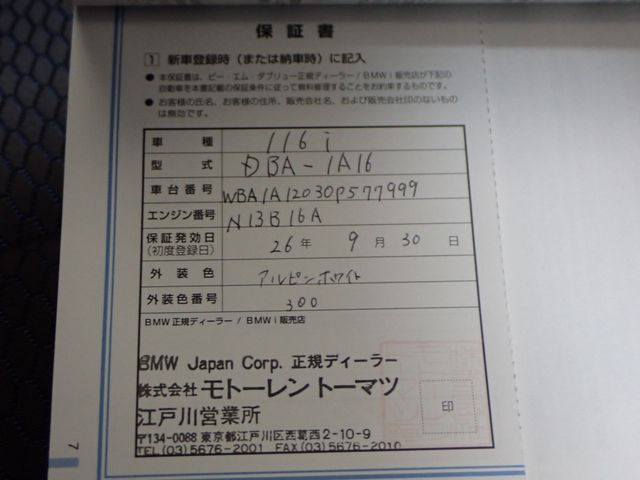 保証書
1 新車登録時（または納車時）に記入
● 本保証書は、ビー・エム・ダブリュー正規ディーラー / BMW i 販売店が下記の
自動車を本書記載の保証条件に従って無料修理することをお約束するものです。
● お客様の氏名、お客様の住所、販売会社名、および販売会社印のないもの
は無効です。
車種 116i
型式 DBA-1A16
車台番号 WBA1A12030P577999
エンジン番号 N13B16A
保証発効日 26年 9月 30日
(初度登録日)
外装色 アルピンホワイト
外装色番号 300
BMW正規ディーラー / BMW i 販売店
BMW Japan Corp. 正規ディーラー
株式会社 モトーレントーマツ
江戸川営業所
印
〒134-0088 東京都江戸川区西葛西2-10-9
TEL(03)5676-2001 FAX(03)5676-2010
7